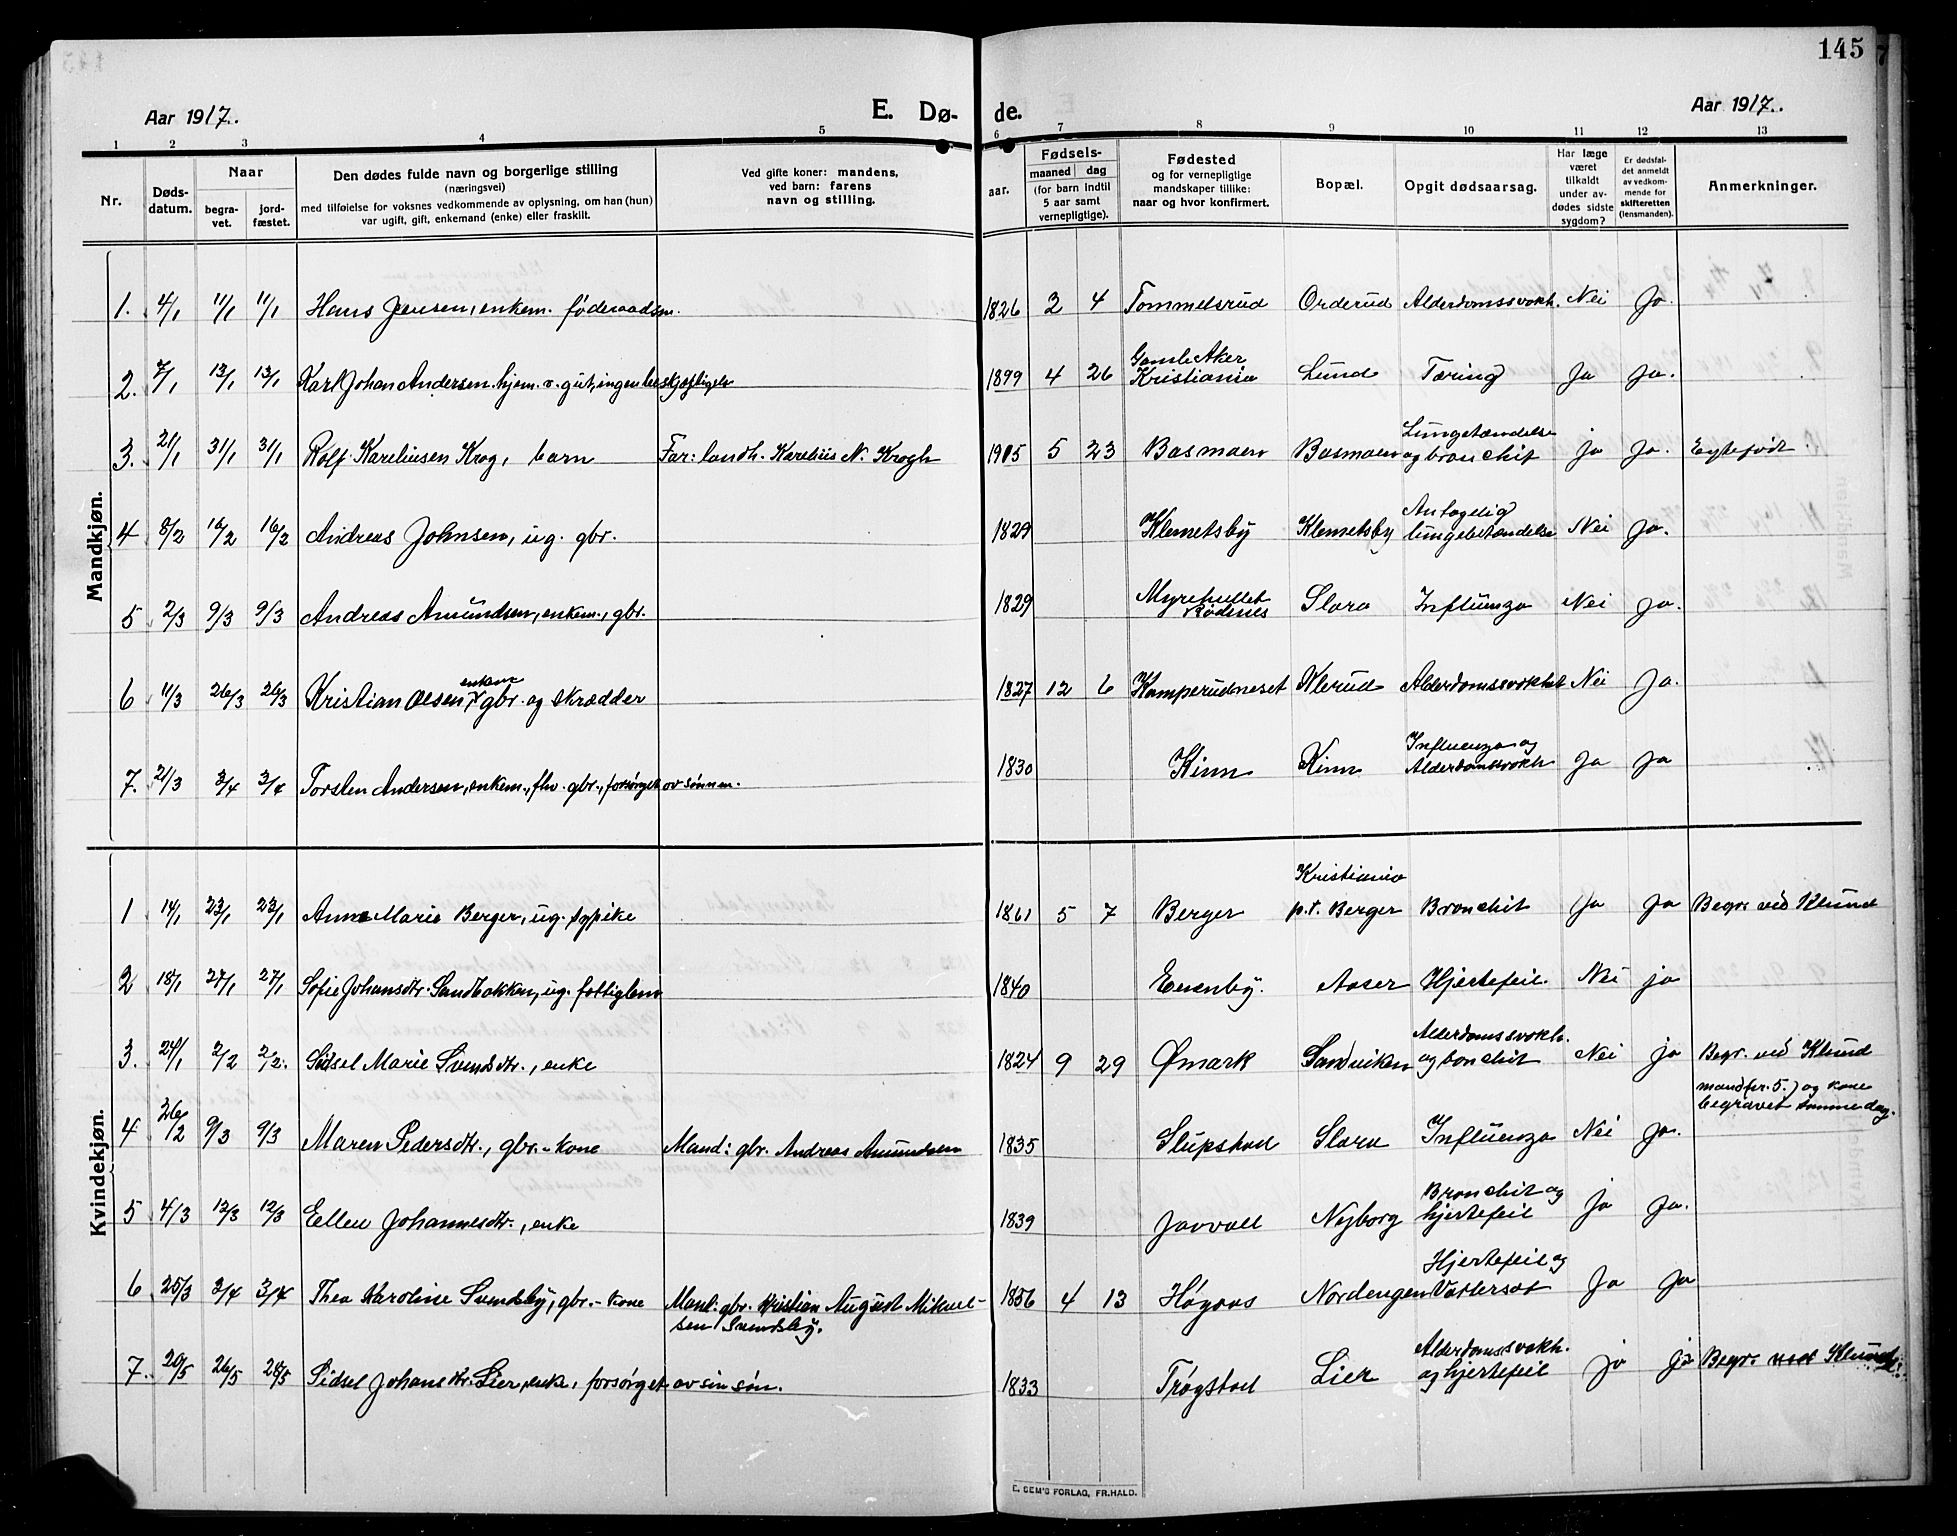 145
Aar 1917.
E. Dø-
de.
Aar 1917.
1 2 3 4 5 6 7 8 9 10 11 12 13
Nr.
Døds-
datum.
Naar
begra-
vet.
jord-
fæstet.
Den dødes fulde navn og borgerlige stilling
(næringsvei)
med tilføielse for voksnes vedkommende av oplysning, om han (hun)
var ugift, gift, enkemand (enke) eller fraskilt.
Ved gifte koner: mandens,
ved barn: farens
navn og stilling.
Fødsels-
aar.
maaned dag
(for barn indtil
5 aar samt
vernepligtige).
Fødested
og for vernepligtige
mandskaper tillike:
naar og hvor konfirmert.
Bopæl.
Opgit dødsaarsag.
Har læge
været
tilkaldt
under av-
dødes sidste
sygdom?
Er dødsfal-
det anmeldt
av vedkom-
mende for
skifteretten
(lensmanden).
Anmerkninger.
Mandkjøn.
1. 4/1 11/1 11/1 Hans Jensen, enkem. føderaadsm. 1826 2 4 Tommelsrud Orderud Alderdomssvakh. Nei Ja.
2. 7/1 13/1 13/1 Karl Johan Andersen. hjem. v. gut, ingen beskjæftigelse 1899 4 26 Gamle Aker
Kristiania Lund Tæring Ja Ja.
3. 21/1 31/1 31/1 Rolf Kareliusen Krog, barn Far: landh. Karelius N. Krogh 1905 5 23 Basmoen Basmoen Lungebetændelse
og bronchit ja Ja. Egtefødt
4 8/2 16/2 16/2 Andreas Johnsen, ug. gbr. 1829 Klemetsby Klemetsby Antagelig
lungebetændelse Nei Ja.
5 2/3 9/3 9/3 Andreas Amundsen, enkem., gbr. 1829 Myrehullet
Rødenes Slora Influenza Nei Ja.
6 11/3 26/3 26/3 Kristian Olsen enkem gbr. og skrædder 1827 12 6 Kamperudneset Klerud Alderdomssvakhet Nei Ja.
7. 21/3 3/4 3/4 Torsten Andersen, enkem., fhv. gbr., forsørget av sønnen. 1830 Kinn Kinn Influenza og
Alderdomssvakh Ja Ja
Kvindekjøn.
1 14/1 23/1 23/1 Anne Marie Berger, ug. sypike 1861 5 7 Berger Kristiania
p.t. Berger Bronchit Ja Ja Begr. ved Klund
2 18/1 27/1 27/1 Sofie Johansdtr. Sandbakken, ug. fattiglem 1840 Evenby. Aaser Hjertefeil. Nei ja
3. 24/1 2/2 2/2. Sidsel Marie Svendsdtr., enke 1824 9 29 Ømark Sandviken Alderdomssvakh.
og bronchit Nei ja Begr. ved Klund
4 26/2 9/3 9/3 Maren Pedersdtr., gbr.-kone Mand: gbr. Andreas Amundsen 1835 Slupstad Slora Influenza Nei Ja. mand (nr. 5.) og kone
begravet samme dag.
5 4/3 12/3 12/3 Ellen Johannesdtr., enke 1839 Javvall Nyborg Bronchit og
hjertefeil ja Ja.
6 25/3 3/4 3/4 Thea Karoline Svendsby, gbr.-kone Mand: gbr. Kristian August Mikael-
sen Svendsby. 1856 4 13 Høgaas Nordengen Hjertefeil og
Vattersot Ja Ja
7. 20/5 26/5 28/5 Sidsel Johansdtr. Lier, enk, forsørget av sin søn. 1833 Trøgstad Lier Alderdomssvakh.
og hjertefeil ja ja Begr. ved Klund.
E. SEM'S FORLAG, FR.HALD.